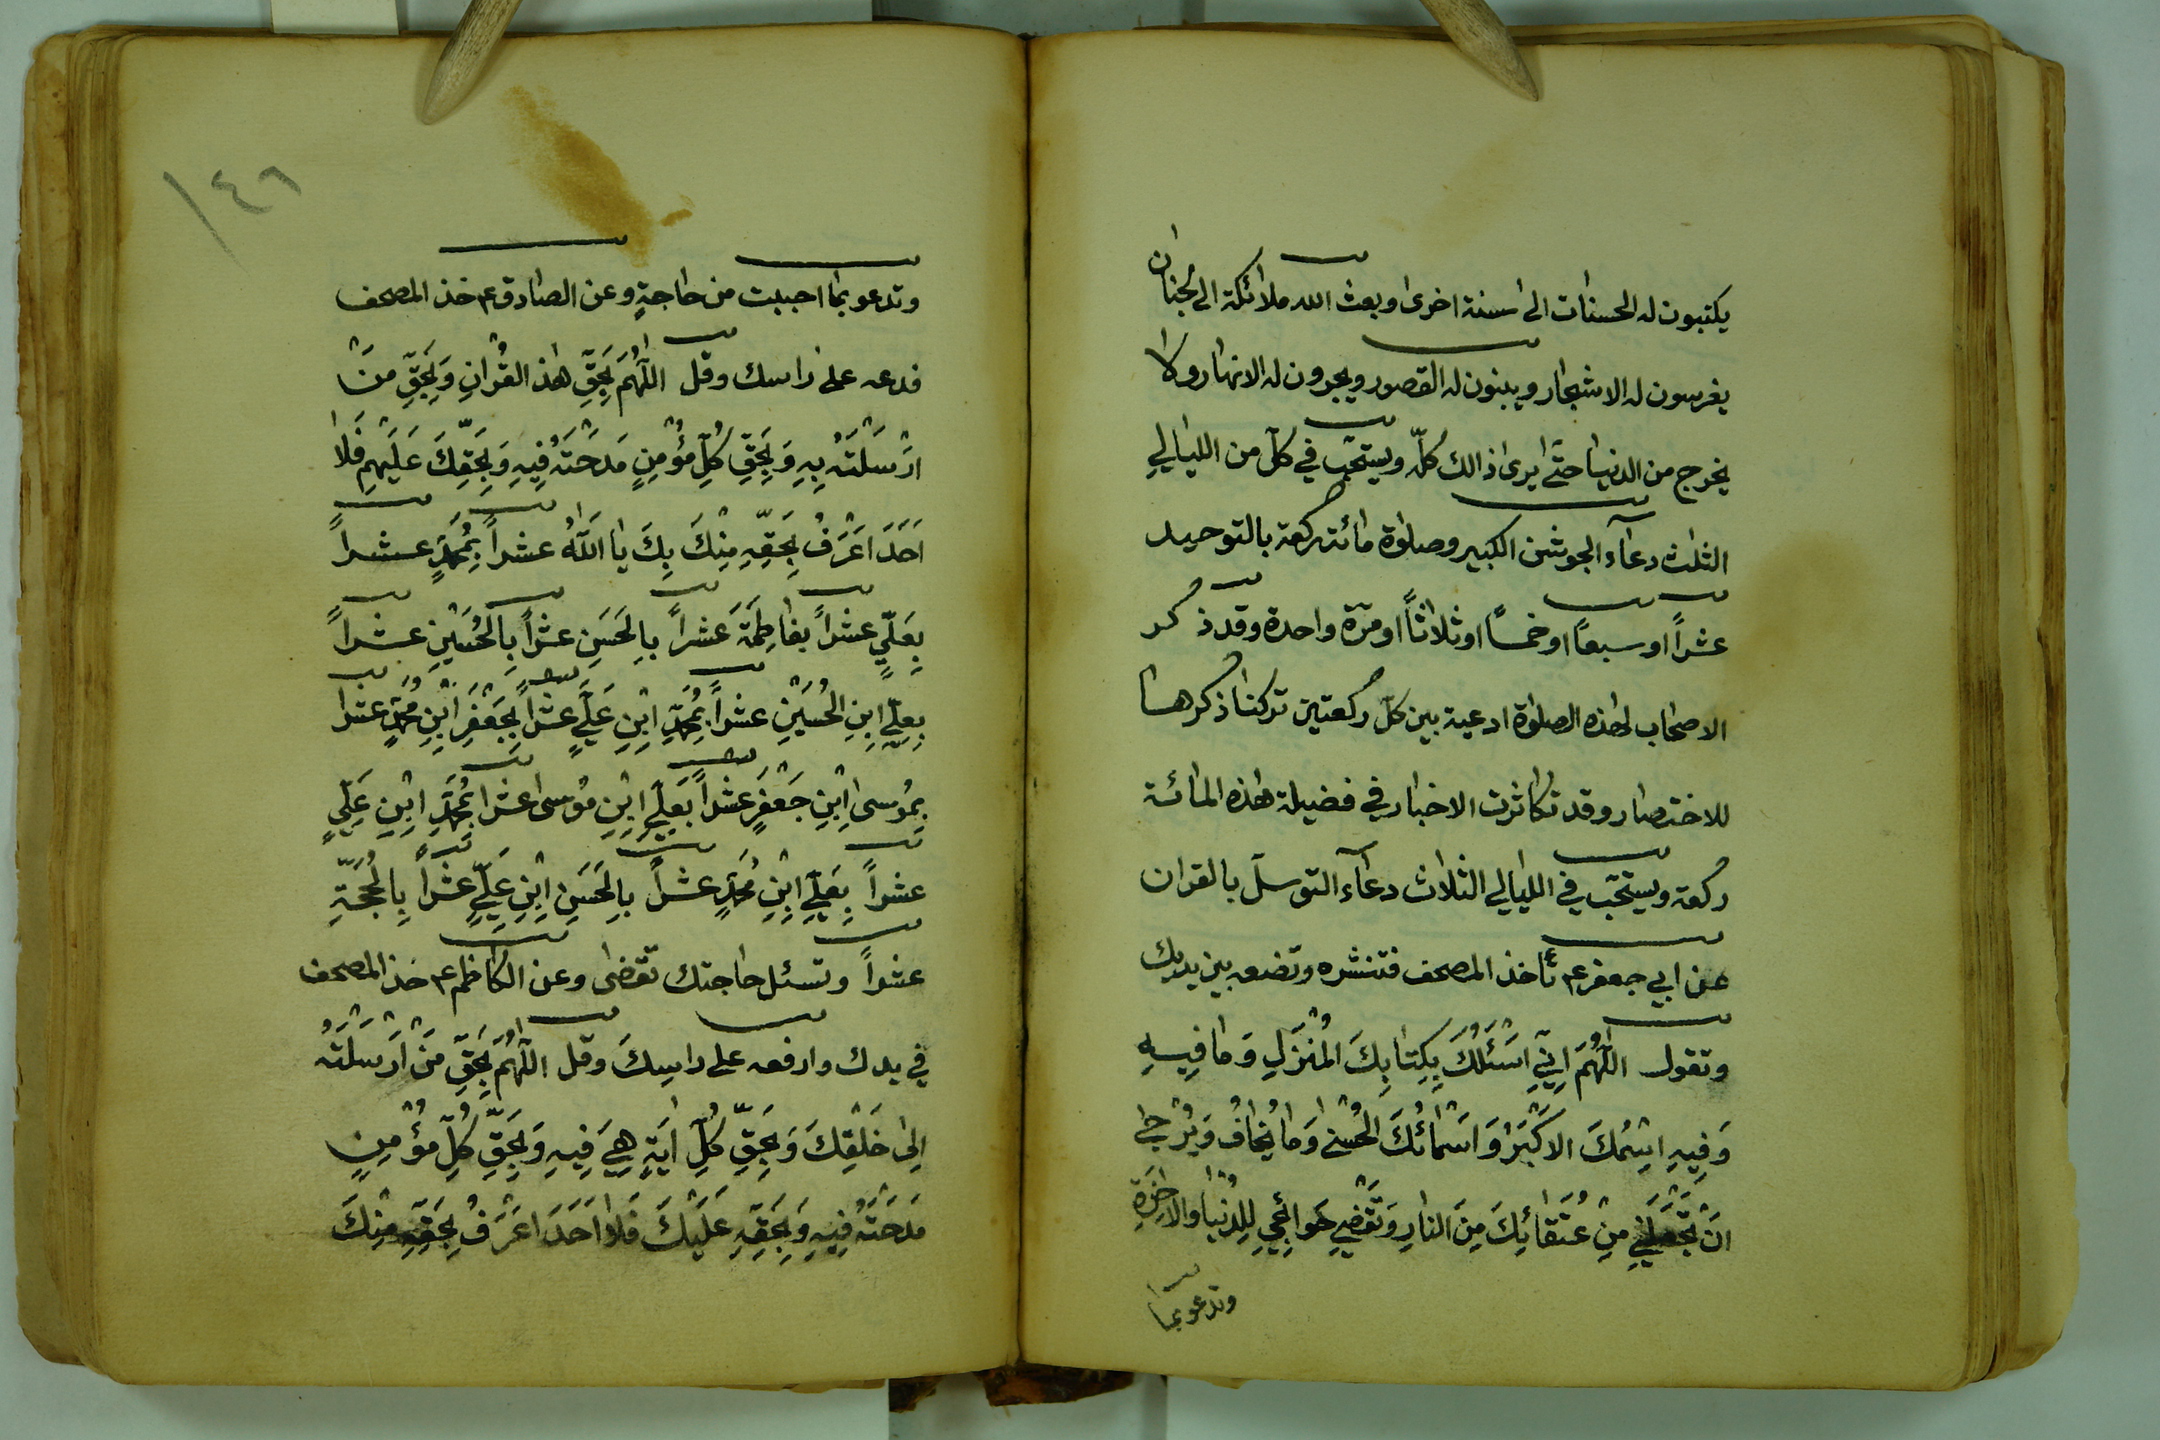 يكتبون له الحسنات الى سنة اخرى وبعث الله ملائكة الى الجنان
يغرسون له الاشجار ويبنون له القصور ويجرون له الانهار ولا
يخرج من الدنيا حتى يرى ذالك كلّه ويستحبّ في كلّ من الليالي
الثلث دعآء الجوشن الكبير وصلوة مائة ركعة بالتوحيد
عشراً او سبعاً او خمساً او ثلاثاً او مرّة واحدة وقد ذكر
الاصحاب لهذه الصلوة ادعية بين كلّ ركعتين تركنا ذكرها
للاختصار وقد تكاثرت الاخبار في فضيلة هذه المائة
ركعة ويستحّب في الليالي الثلاث دعآء التوسلّ بالقران
عن ابي جعفر ع تأخذ المصحف فتنشره وتضعه بين يديك
وتقول اَللّهُمَّ اِنّيِ اَسْئَلُكَ بِكِتابِكَ المُنْزَلِ وَما فِيهِ
وَفِيهِ اسْمُكَ الاَكْبَرُ وَ اَسْمائُكَ الحُسْنى وَما يُخافُ وَيُرْجى
اَنْ تَجْعَلَنيِ مِنْ عُتَقائِكَ مِنَ النارِ وَتَقْضيِ حَوائِجيِ لِلدُنْيا والاخِرَةِ
وتدعو بما
١٤٦
وتدعو بما احببت من حاجةٍ وعن الصادق ع خذ المصحف
فدعه على راسك وقل اَللّهُمَّ بِحَقِّ هذ القُرْانِ وَبِحَقِّ مَنْ
اَرْسَلْتَهُ بِهِ وَبِحَقِّ كُلِّ مُؤْمِنٍ مَدَحْتَهُ فِيهِ وَبِحَقِّكَ عَلَيْهِمِ فَلا
اَحَدَ اَعْرَفُ بِحَقِّهِ مِنْكَ بِكَ يا اَللّهُ عشراً بِمُحَمَّدٍ عشراً
بِعَلِيٍّ عشراً بفاطِمَةَ عشراً بِالحَسَنِ عشراً بِالحُسَيْنِ عشراً
بِعَلِيِّ ابِنِ الحُسَيْنِ عشراً بِمُحَمَّدِ ابْنِ عَلِيٍّ عشراً بِجَعْفَرِ ابْنِ مُحَمَّدٍ عشرا
بِمُوسى ابْنِ جَعْفَرٍ عشراً بعَلِيِّ ابْنِ مُوسى عشرا بِمُحَمَّدِ ابْنِ عَلِيٍّ
عشراً بِعَلِيِّ ابْنِ مُحَمَّدٍ عشراً بِالحَسَنِ ابْنِ عَلِيٍّ عشراً بِالحُجَّةِ
عشراً وتسئل حاجتك تقضى وعن الكاظم ع خذ المصحف
في يدك وارفعه على راسِكَ وقل اَللّهُمَّ بِحَقِّ مَنْ اَرْسَلْتَهُ
اِلى خَلْقِكَ وَبِحَقِّ كُلِّ ايَةٍ هِيَ فِيهِ وَبِحَقِّ كُلِّ مُؤْمِنٍ
مَدَحْتَهُ فِيهِ وَبِحَقِّهِ عَلَيْكَ فَلا اَحَدَ اَعْرَفُ بِحَقِّهِ مِنْكَ